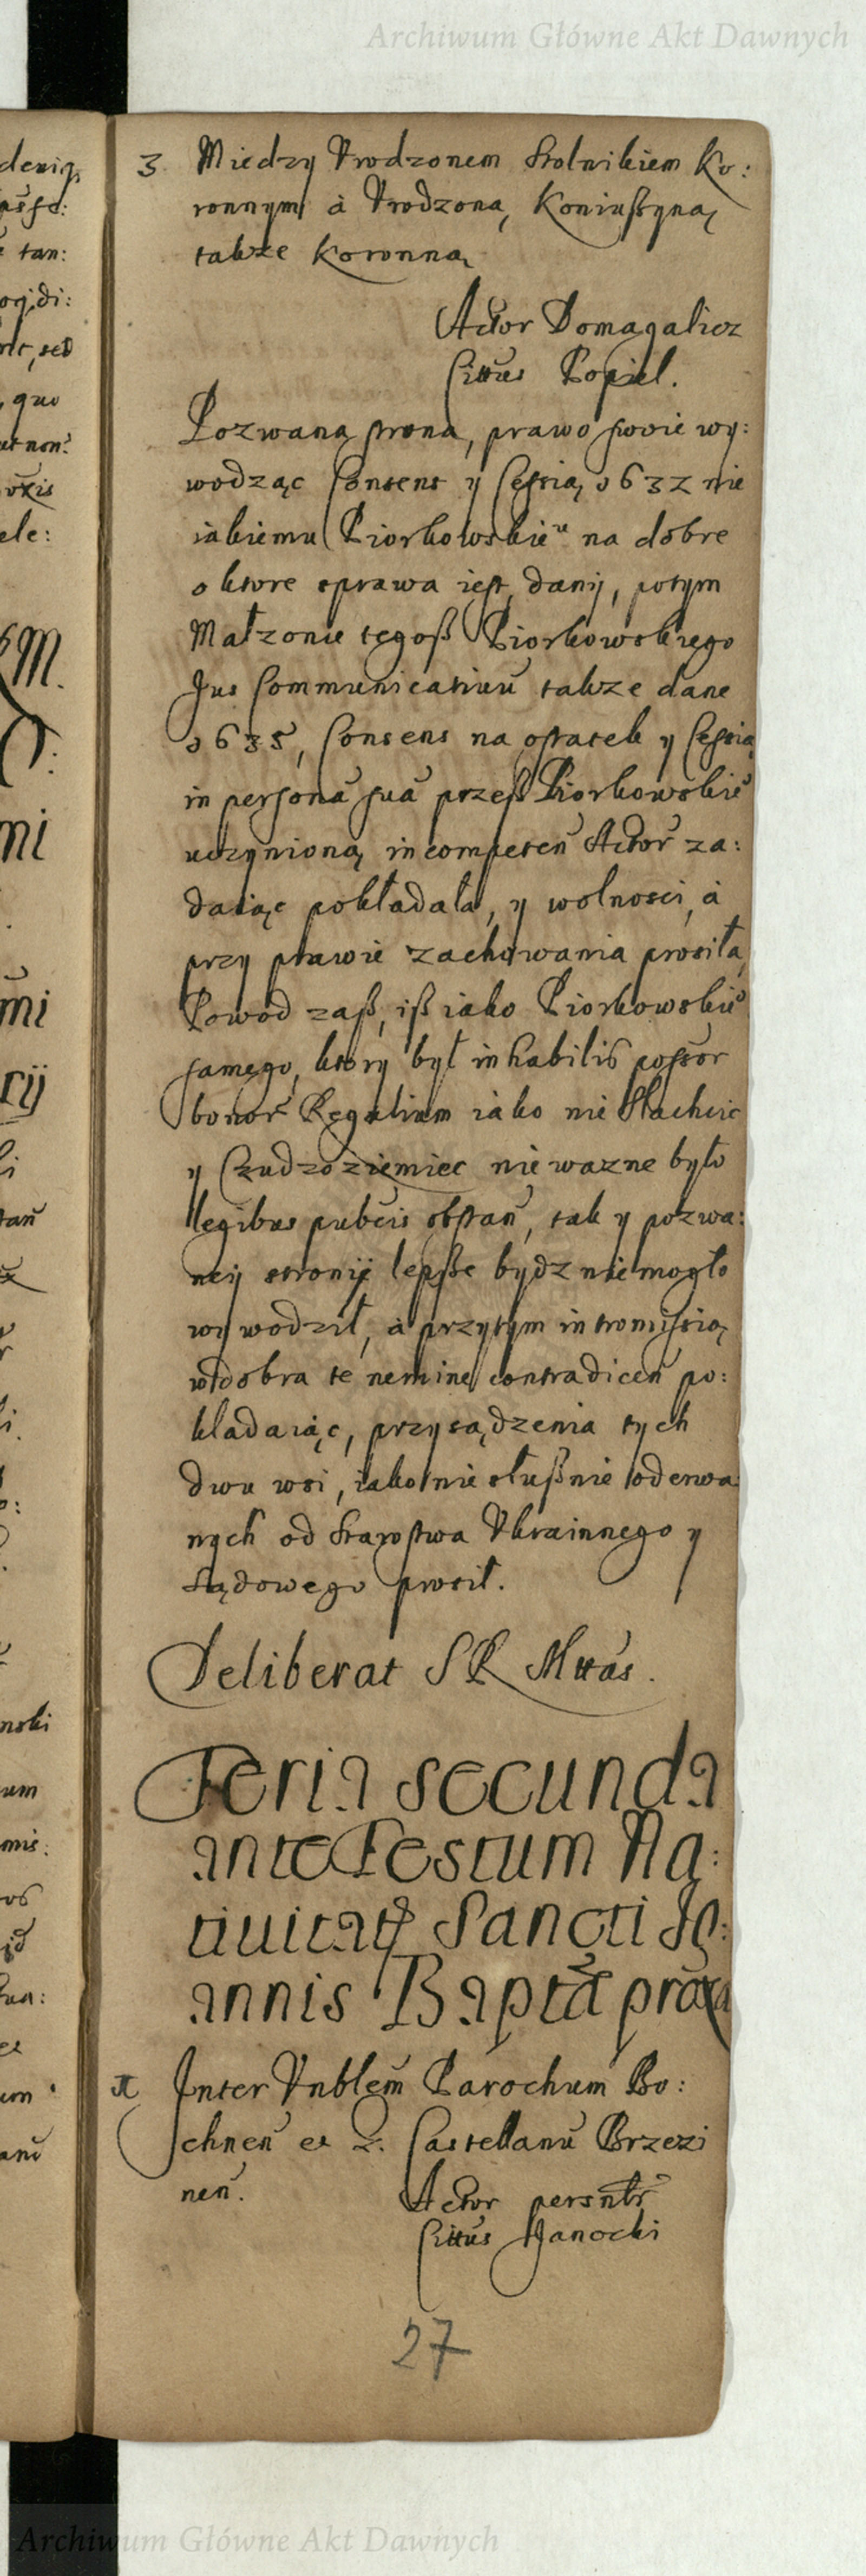 Archiwum Główne Akt Dawnych
3 Miedzy Vrodzonem Stolnikiem Ko:
ronnym à Vrodzoną Koniuszyną
także Koronną
Actor Domagalicz
Cittus Popiel.
Pozwana strona, prawo swoie wy:
wodząc Consens y Cessią 1632 nie
iakiemu Piorkowskieu na dobre
o ktore sprawa iest dany, potym
Małzonie tegosz Piorkowskiego
Jus Communicativū także dane
1635, Consens na ostatek y Cessią
in personā suā przesz Piorkowskie
uczynioną, incompeten Actor za:
daiąc pokładała, y wolnosci, à
przy prawie zachowania prosiła,
Powod zasz, isz iako Piorkowskie
samego, ktory był inhabilis possor
bonor Regalium iako nie Slachcic
y Czudzoziemiec nie wazne było
legibus publcis obstan, tak y pozwa:
neij stronij lepsze bydz nie mogło
wywodził, à przytym intromissią
w dobra te nemine contradicen po:
kładaiąc, przysądzenia tych
dwu wsi, iako nie słusznie oderwa
nych od Starostwa Vkrainnego y
Sądowego prosił.
Deliberat S R Mttas.
Feria secunda
ante Festum Na:
tiuitatis Sancti Jo:
annis Baptā
Inter Vnblem Parochum Bo:
chnen et Castellanū Brzezi
nen.
Actor persntr
Cittus Janocki
27
Archiwum Główne Akt Dawnych